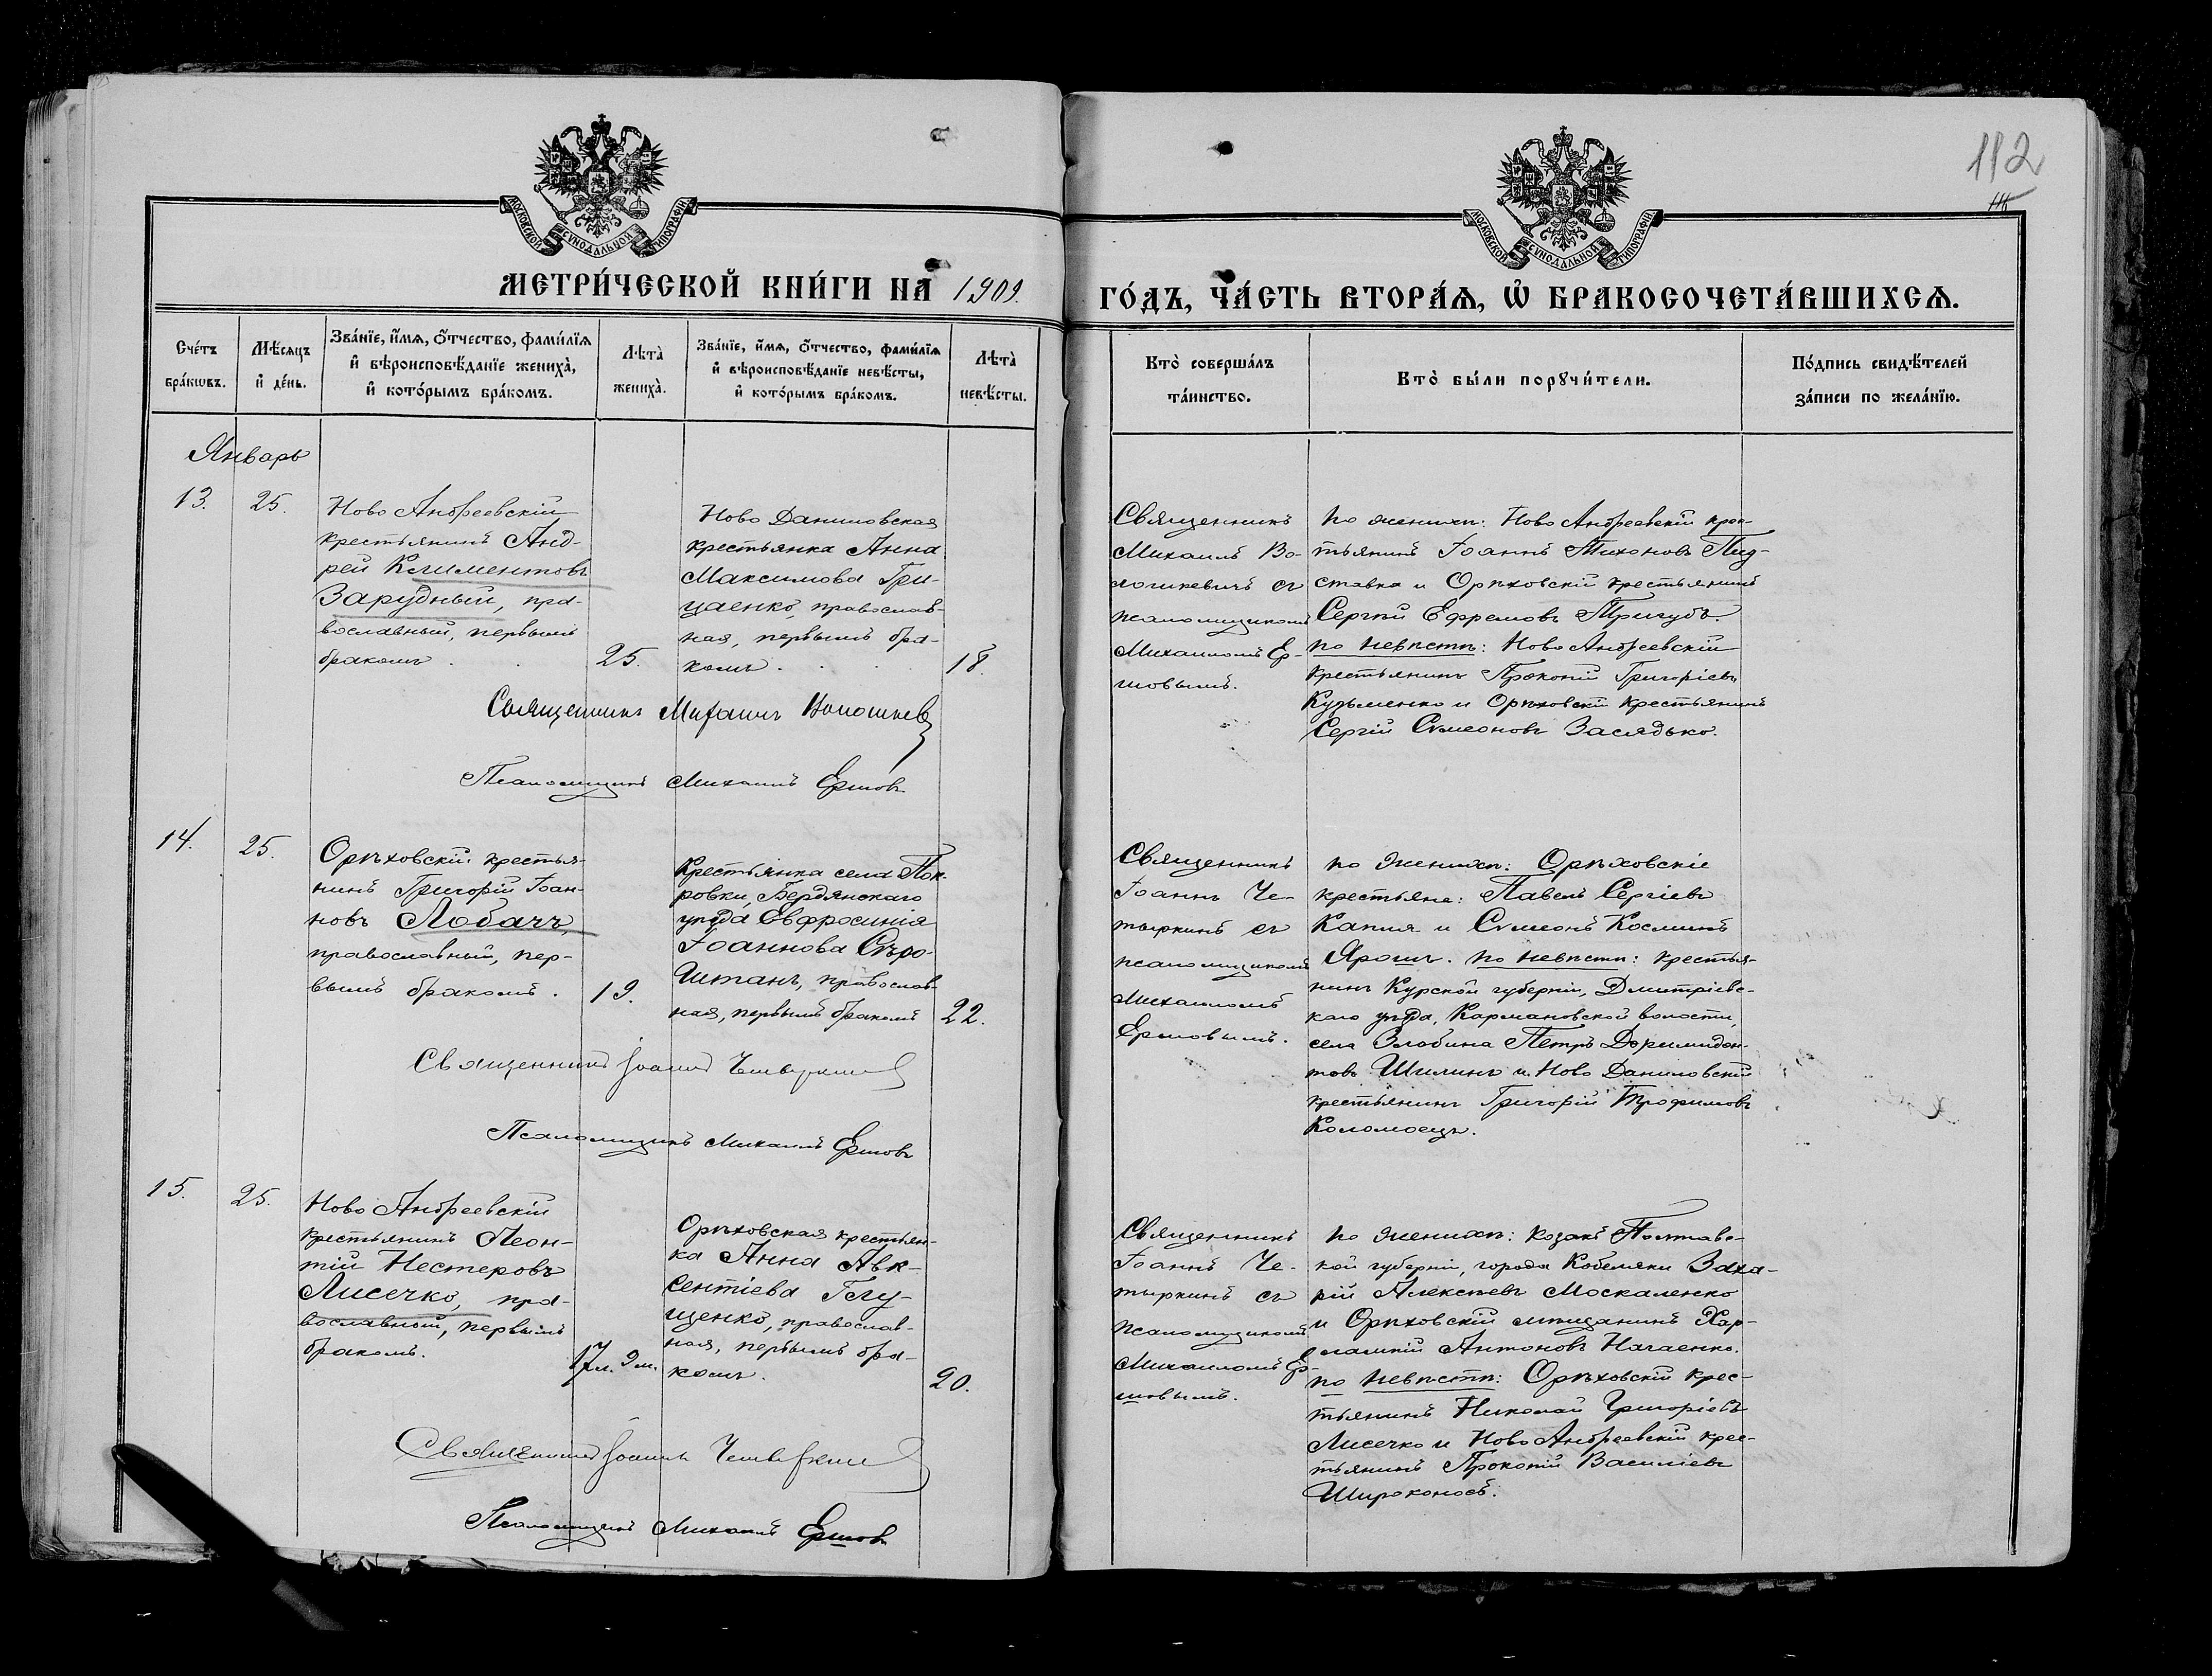 112
МОСКОВСКОЙ СУНОДАЛЬНОЙ ТИПОГРАФІИ
МОСКОВСКОЙ СУНОДАЛЬНОЙ ТИПОГРАФІИ
МЕТРИ́ЧЕСКОЙ КНИ́ГИ НА 1909.
ГО́ДЪ, ЧА́СТЬ ВТОРА́Ѧ, Ѽ БРАКОСОЧЕТА́ВШИХСѦ.
Сче́тъ
бра́кѡвъ.
Мѣ́сяцъ
и҆ де́нь.
Зва́нїе, и҆́мя, ѻ҆́тчество, фами́лїя
и҆ вѣроисповѣ́данїе жениха̀,
и҆ кото́рымъ бра́комъ.
Лѣта̀
жениха̀.
Зва́нїе, и҆́мя, ѻ҆́тчество, фами́лїя
и҆ вѣроисповѣ́данїе невѣ́сты,
и҆ кото́рымъ бра́комъ.
Лѣта̀
невѣ́сты.
Кто̀ соверша́лъ
та́инство.
Кто̀ бы́ли порꙋчи́тели.
По́дпись свидѣ́телей
за́писи по жела́нїю.
Январь
13.
25.
Ново Андреевскій
крестьянинъ Анд-
рей Климентовъ
Зарудный, пра-
вославный, первымъ
бракомъ.
25.
Ново Даниловская
крестьянка Анна
Максимова Гри-
цаенко, православ-
ная, первымъ бра-
комъ.
18.
Священникъ
Михаилъ Во-
лошкевичъ съ
псаломщикомъ
Михаиломъ Ер-
шовымъ.
по женихѣ: Ново Андреевскій крес-
тьянинъ Іоаннъ Тихоновъ Пид-
ставка и Орѣховскій крестьянинъ
Сергѣй Ефремовъ Тригубъ.
по невѣстѣ: Ново Андреевскій
крестьянинъ Прокопій Григоріевъ
Кузьменко и Орѣховскій крестьянинъ
Сергій Сѵмеоновъ Заслдько.
Священникъ Михаилъ Волошкев
Псаломщикъ Михаилъ Ершовъ
14.
25.
Орѣховскій крестья-
нинъ Григорій Іоан-
новъ Лобачъ,
православный, пер-
вымъ бракомъ.
19.
Крестьянка села Пок-
ровки, Бердянскаго
уѣзда Евфросинія
Іоаннова Сѣро-
штанъ, православ-
ная, первымъ бракомъ
22.
Священникъ
Іоаннъ Че-
тыркинъ съ
псаломщикомъ
Михаиломъ
Ершовымъ.
по женихѣ: Орѣховскіе
крестьяне: Павелъ Сергіевъ
Капля и Сѵмеонъ Косминъ
Ярошъ. по невѣстѣ: крестья-
нинъ Курской губерніи, Дмитріевс-
каго уѣзда, Кармановской волости,
села Злобина Петръ Доримидон-
товъ Шилинъ и Ново Даниловскій
крестьянинъ Григорій Трофимовъ
Коломоецъ.
Священникъ Іоаннъ Четыркинъ
Псаломщикъ Михаилъ Ершовъ
15.
25.
Ново Андреевскій
крестьянинъ Леон-
тій Нестеровъ
Лисечко, пра-
вославный, первымъ
бракомъ.
17 л. 9 м.
Орѣховская крестьян-
ка Анна Авк-
сентіева Глу-
щенко, православ-
ная, первымъ бра-
комъ.
20.
Священникъ
Іоаннъ Че-
тыркинъ съ
псаломщикомъ
Михаиломъ Ер-
шовымъ.
по женихѣ: козакъ Полтавс-
кой губерніи, города Кобеляки Заха-
рій Алексѣевъ Москаленко
и Орѣховскій мѣщанинъ Хар-
лампій Антоновъ Начаенко.
по невѣстѣ: Орѣховскій крес-
тьянинъ Николай Григоріевъ
Лисечко и Ново Андреевскій крес-
тьянинъ Прокопій Василіевъ
Широконосъ.
Священникъ Іоаннъ Четыркинъ
Псаломщикъ Михаилъ Ершовъ